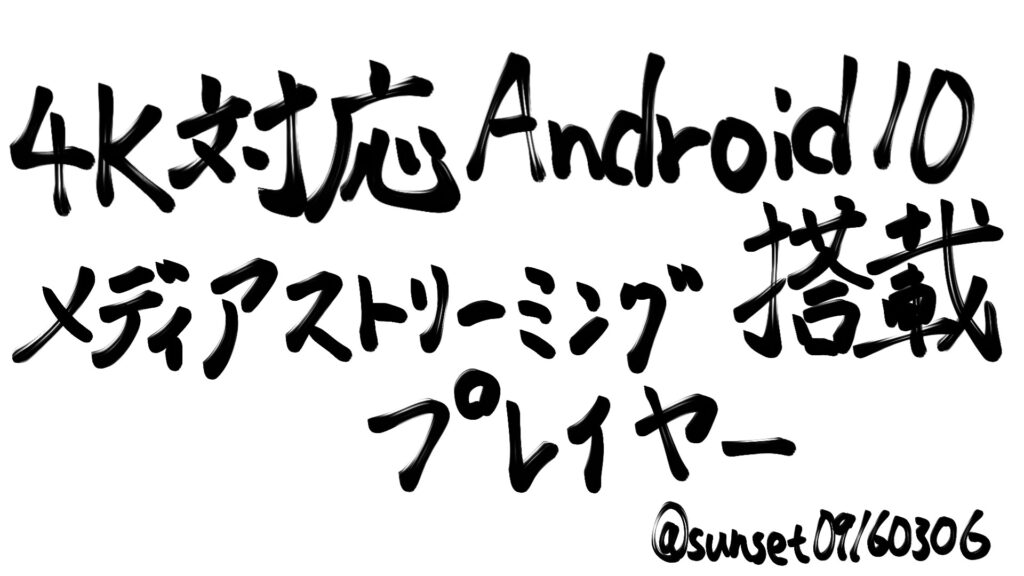 4K対応Android10
搭載
メディアストリーミング
プレイヤー
@sunset09160306